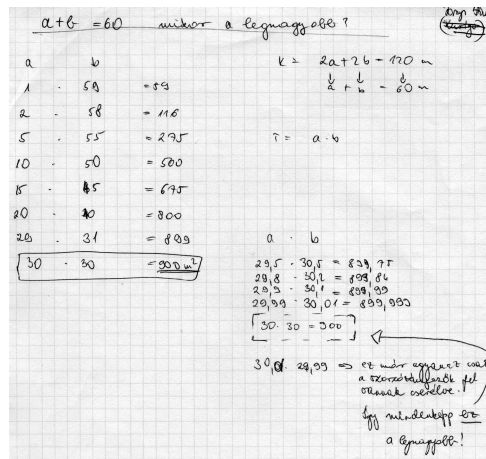 a+b =60 mikor a legnagyobb?
a b
1 · 59 = 59
2 · 58 = 116
5 · 55 = 275
10 · 50 = 500
15 · 45 = 675
20 · 40 = 800
29 · 31 = 899
30 · 30 = 900 m²
K = 2a+2b = 120 m
a + b = 60 m
T = a·b
a · b
29,5 · 30,5 = 899,75
29,8 · 30,2 = 899,84
29,9 · 30,1 = 899,99
29,99 · 30,01 = 899,999
30·30 = 900
30,01 · 29,99 => ez már ugyanaz csak
a szorzótényezők fel
vannak cserélve.
Így mindenképp ez
a legnagyobb!